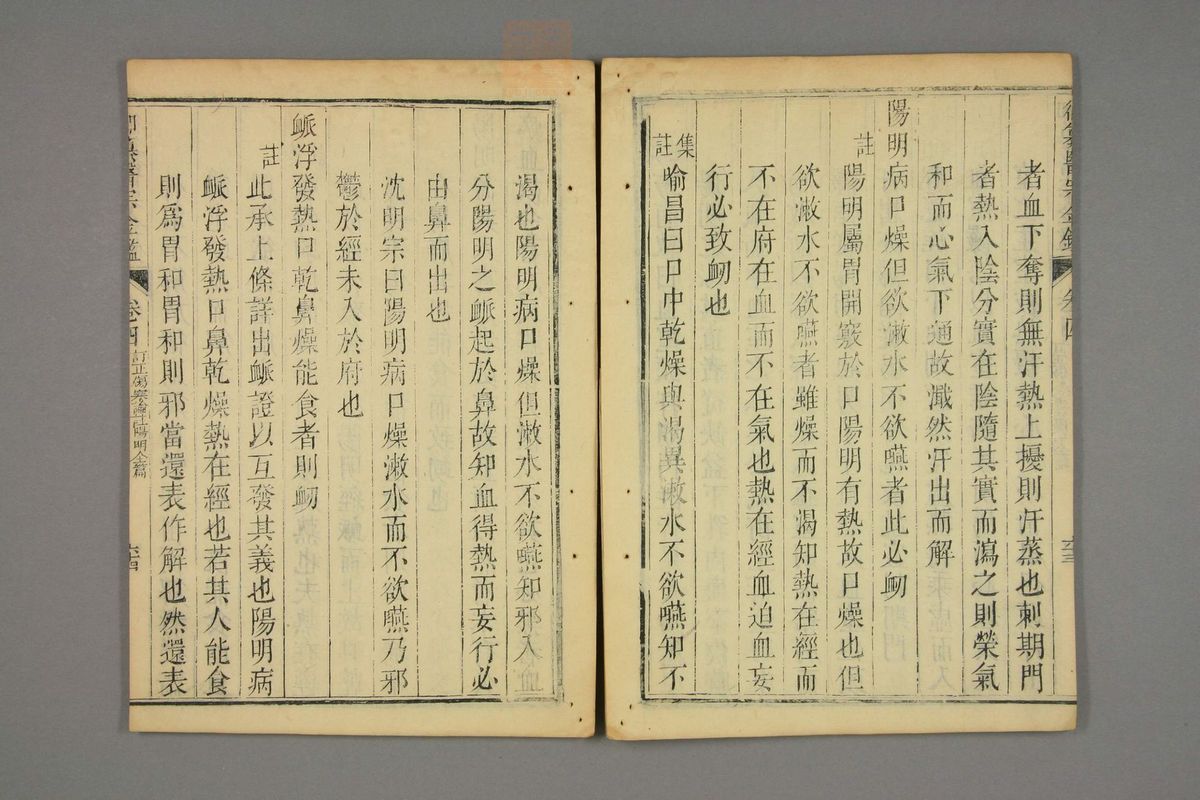 御纂醫宗金鑑 卷四 六三
者血下奪則無汗熱上擾則汗蒸也刺期門
者熱入陰分實在陰隨其實而瀉之則榮氣
和而心氣下通故濈然汗出而解
陽明病口燥但欲漱水不欲嚥者此必衂
註 陽明屬胃開竅於口陽明有熱故口燥也但
欲漱水不欲嚥者雖燥而不渴知熱在經而
不在府在血而不在氣也熱在經血迫血妄
行必致衂也
集註 喻昌曰口中乾燥與渴異漱水不欲嚥知不
渴也陽明病口燥但漱水不欲嚥知邪入血
分陽明之脈起於鼻故知血得熱而妄行必
由鼻而出也
沈明宗曰陽明病口燥漱水而不欲嚥乃邪
鬱於經未入於府也
脈浮發熱口乾鼻燥能食者則衂
註 此承上條詳出脈證以互發其義也陽明病
脈浮發熱口鼻乾燥熱在經也若其人能食
則為胃和胃和則邪當還表作解也然還表
御纂醫宗金鑑 卷四 訂正傷寒論註陽明全篇 六四